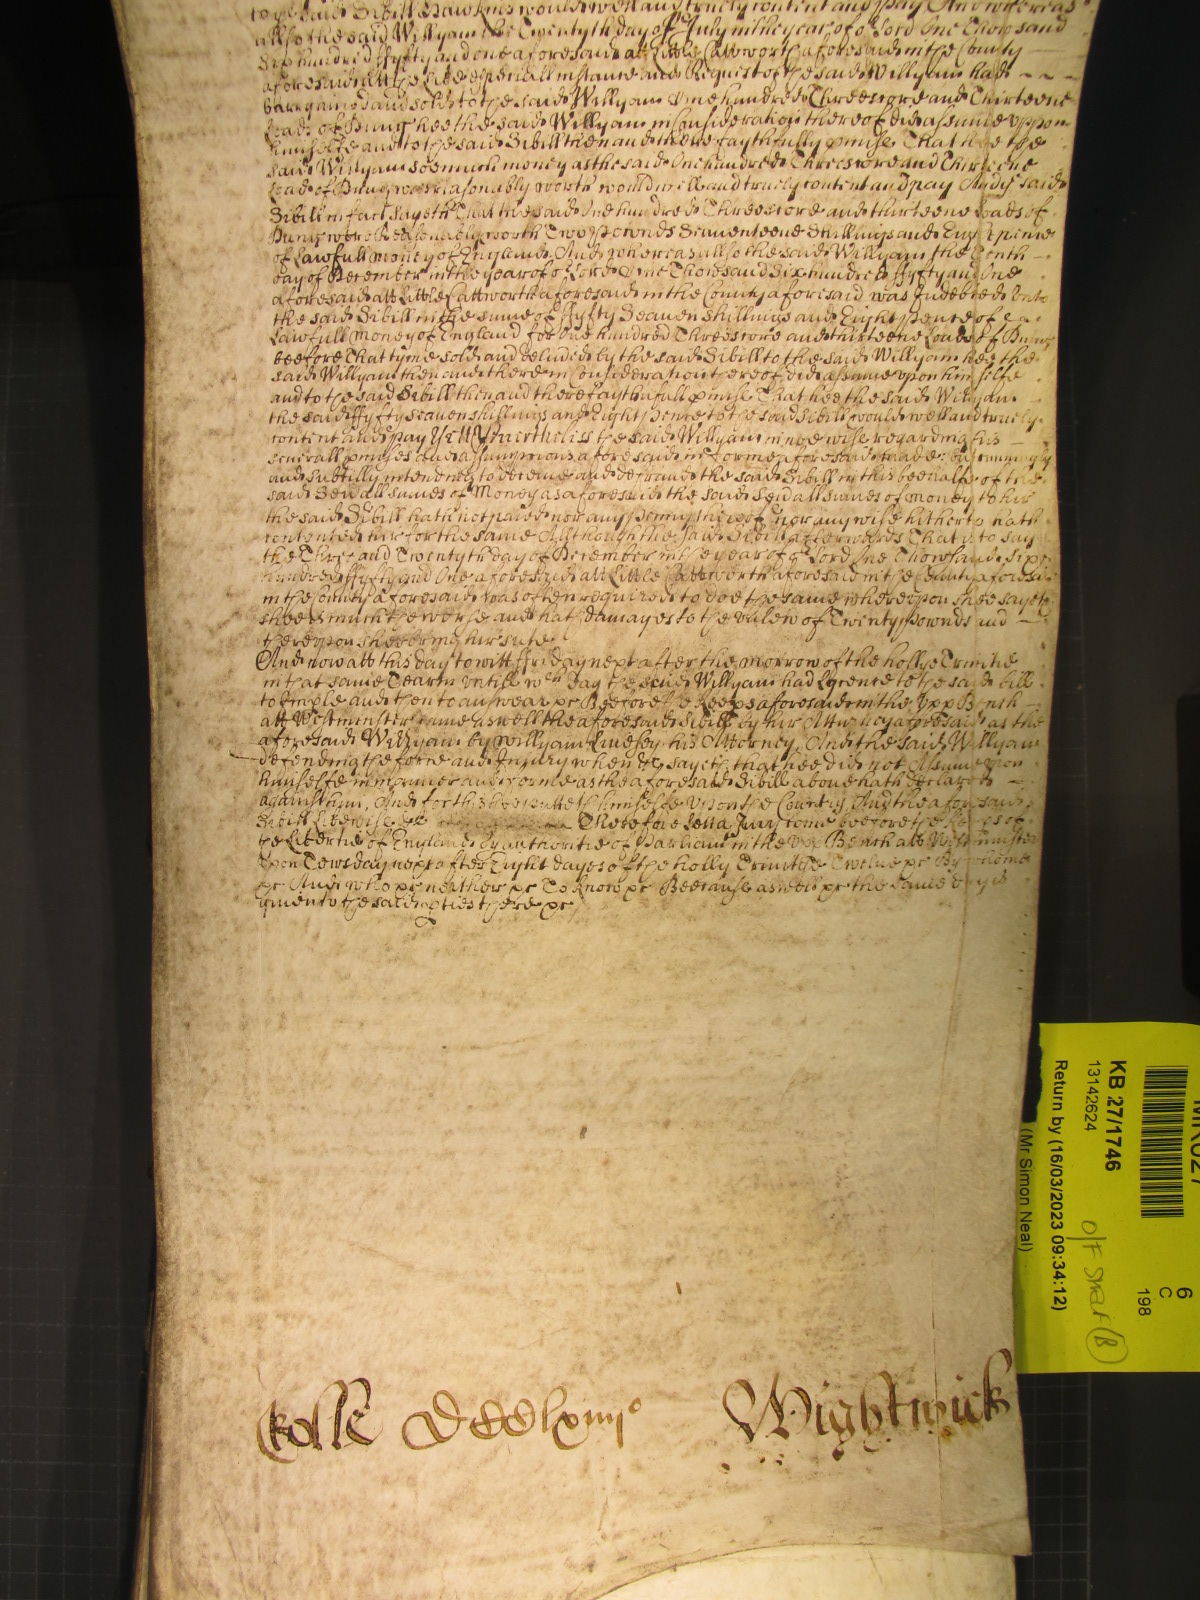 to the said Sibill Hawkins would well and truely content and pay And whereas
allso the said Willyam the Twentyth day of July in the year of or Lord One Thowsand
Six hundred ffyfty and one aforesaid att Little Cattworth aforesaid in the County
aforesaid att the like especiall instance and Request of the said Willyam had
bargayned and sold to the said Willyam One hundred Threescore and Thirteene
Loads of Dung hee the said Willyam in Consideration thereof did assume uppon
himselfe and to the said Sibill then and there faythfully pmise That hee the
said Willyam soe much money as the said One hundred Threescore and Thirteene
load of Dung was reasonably worth would well and truely content and pay And the said
Sibill in fact sayeth That the said One hundred Threescore and thirteene loads of
Dung were Reasonably worth Two Pownds Seaventeene Shillings and Eight pence
of Lawfull money of England And whereas allso the said Willyam the Tenth
day of December in the year of or Lord One Thowsand Six hundred ffyfty and One
aforesaid att Little Cattworth aforesaid in the County aforesaid was Indebted unto
the said Sibill in the sume of ffyfty Seaven Shillings and Eight pence of
Lawfull money of England for One hundred Threescore and thirteene Loads of Dung
beefore That tyme sold and delivered by the said Sibill to the said Willyam hee the
said Willyam then and there in Consideration thereof did assume upon himselfe
and to the said Sibill then and there faythfull pmise That hee the said Willyam
the said ffyfty seaven shillings and Eight pence to the said Sibill would well and truely
content and pay Yett Neverthelisse the said Willyam in noe wise regarding his
severall pmises and assumpcions aforesaid in forme aforesaid made but cunningly
and subtilly intending to deceive and defraud the said Sibill in this beehalfe of the
said Sevall sumes of Money as aforesaid the said Sevall sumes of money to hir
the said Sibill hath not paied nor any penny thereof nor any wise hitherto hath
contented hir for the same Allthough the said Sibill afterwards That is to say
the Three and Twentyth day of December in the year of or Lord One Thowsand Six
hundred ffyfty and One aforesaid att Little Cattworth aforesaid in the County aforesaid
in the County aforesaid was often required to doe the same whereupon shee sayeth
shee is much the worse and hath damages to the valew of Twenty Pownds and
thereupon shee bring hir suite
And now att this day to witt ffriday next after the morrow of the hollye Trinitie
in that same Tearm untill wch day the said Willyam had Lycence to the said bill
to Emple and then to answear &c Beefore the keeps aforesaid in the Upp Bench
att Westminster came aswell the aforesaid Sibill by hir Attorney aforesaid as the
aforesaid Willyam by Willyam Lindsey his Attorney And the said Willyam
defending the force and Injury when &c sayeth that hee did not Assume upon
himselfe in manner and forme as the aforesaid Sibill above hath declared
against him And for this hee putteth himselfe upon the Country And the aforesaid
Sibill likewise &c Therefore Lett a Jury come beefore the keeps of
the Libertie of England by authoritie of Parliamt in the upp Bench att Westminster
upon Tewsday next after Eight dayes of the holly Trinitye Twelve &c By whome
&c And who &c neither &c To know &c Beecause aswell &c the same day is
given to the said pties there &c
Rolle DCClxiiijo Wightwick
KB 27/1746
13142624
Return by (16/03/2023 09:34:12)
(Mr Simon Neal)
6
C
198